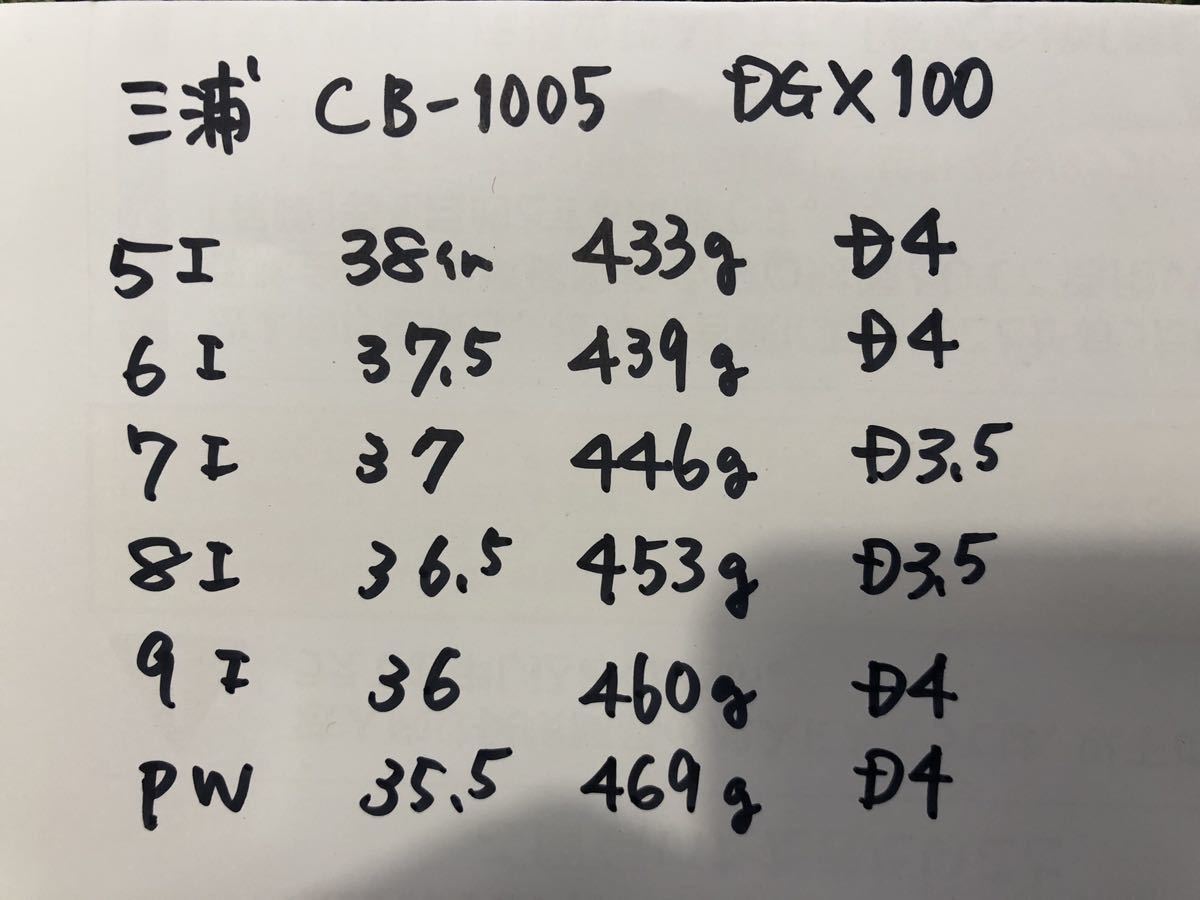 三浦 CB-1005 DG X100
5I 38in 433g D4
6I 37.5 439g D4
7I 37 446g D3.5
8I 36.5 453g D3.5
9I 36 460g D4
PW 35.5 469g D4